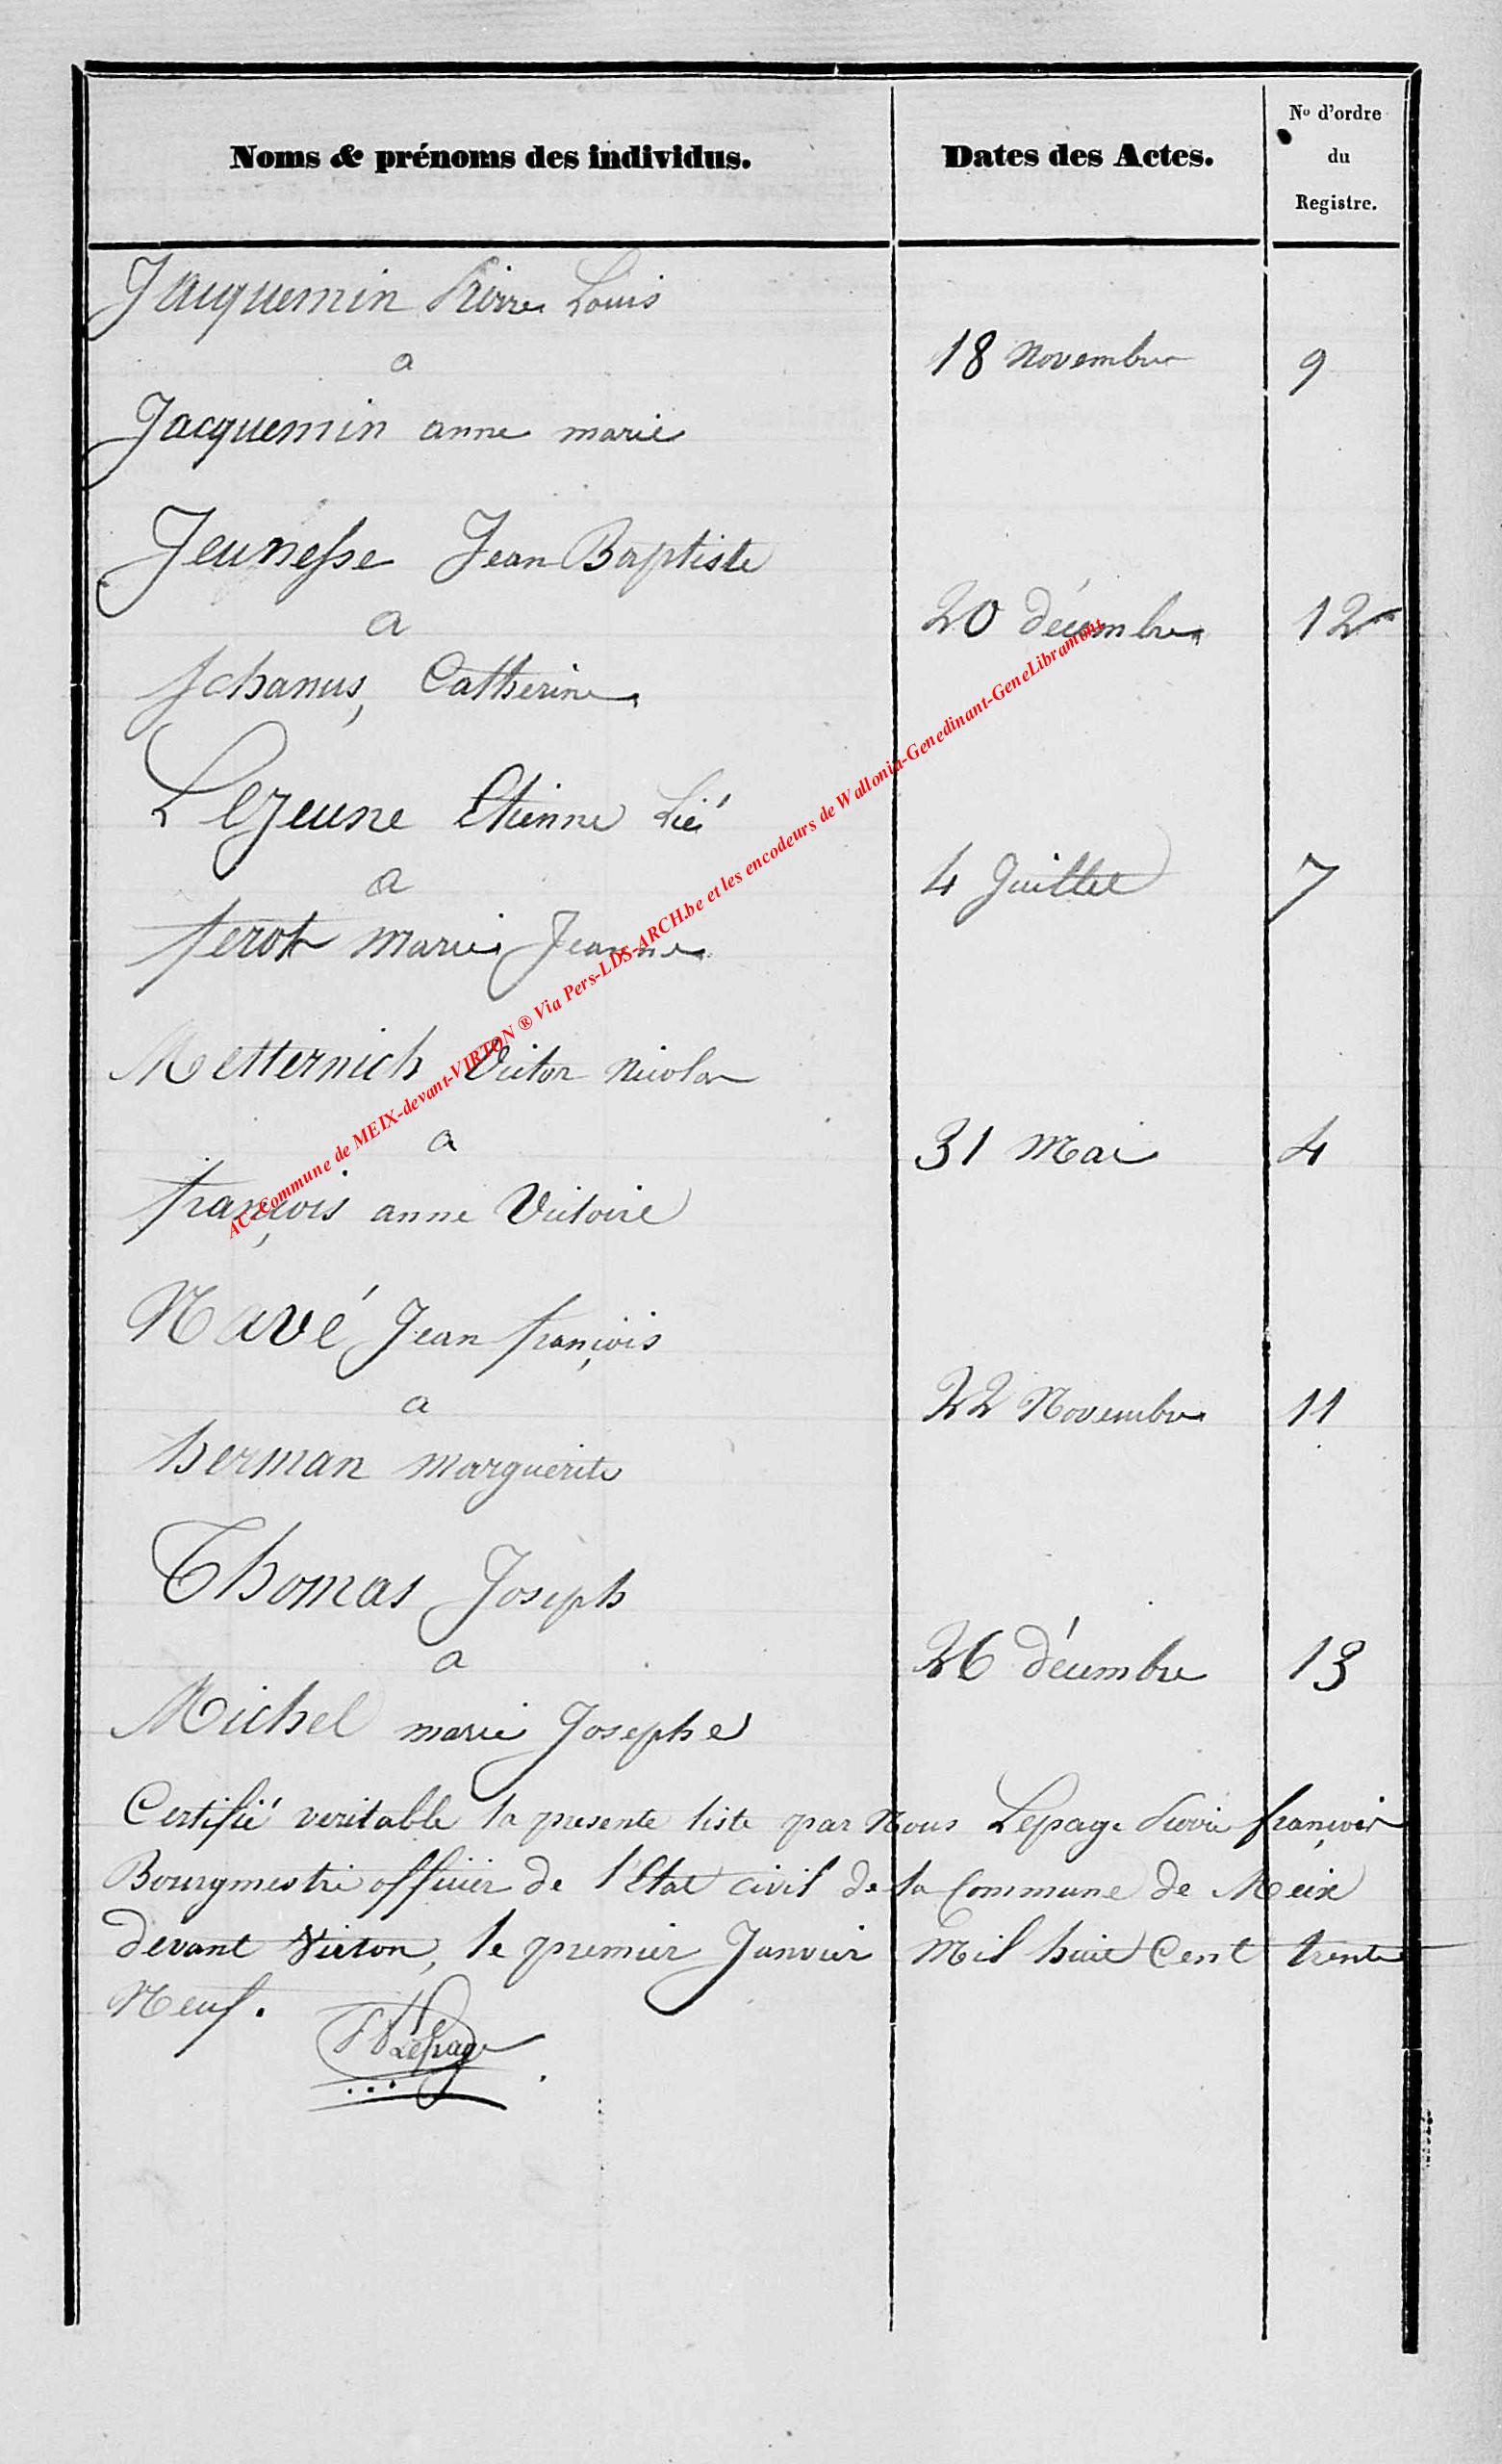 Noms & prénoms des individus.
Dates des Actes.
No d'ordre
du
Registre.
Jacquemin Pierre Louis
a
18 Novembre
9
Jacquemin anne marie
Jeunesse Jean Baptiste
a
20 décembre
12
schanus, Catherine
Lejeune Etienne Lié
a
4 Juillet
7
ferot marie Jeanne
Metternich Victor Nicolas
a
31 Mai
4
françois anne Victoire
Navé Jean françois
a
22 Novembre
11
herman marguerite
Thomas Joseph
a
26 décembre
13
Michel marie Josephe
Certifié veritable la presente liste par Nous Lepage françois
Bourgmestre officier de l'Etat civil de la Commune de Meix
devant Virton, le premier Janvier Mil huit Cent trente
Neuf.
Lepage
AC-Commune de MEIX-devant-VIRTON ® Via Pers-LDS-ARCH.be et les encodeurs de Wallonia-Genedinant-GeneLibramont